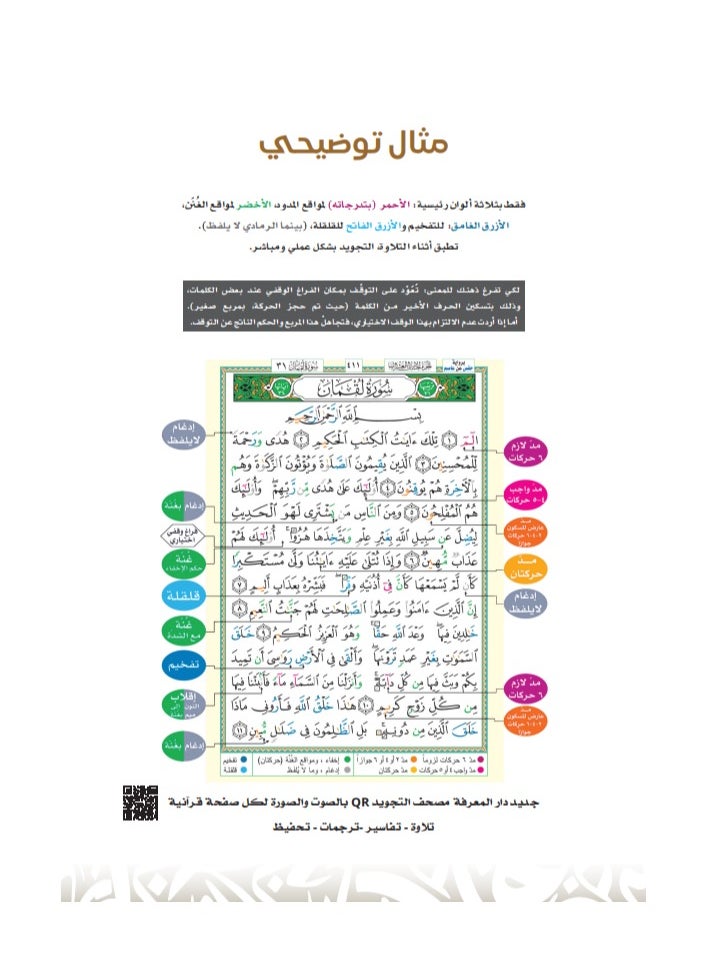 مثال توضيحي
فقط بثلاثة ألوان رئيسية: الأحمر (بتدرجاته) لمواقع المدود، الأخضر لمواقع الغُنَن،
الأزرق الغامق: للتفخيم والأزرق الفاتح للقلقلة، (بينما الرمادي لا يلفظ).
تطبق أثناء التلاوة، التجويد بشكل عملي ومباشر.
لكي تفرغ ذهنك للمعنى: تُعَوَّد على التوقُف بمكان الفراغ الوقفي عند بعض الكلمات،
وذلك بتسكين الحرف الأخير من الكلمة (حيث تم حجز الحركة، بمربع صغير).
أما إذا أردت عدم الالتزام بهذا الوقف الاختياري، فتجاهلْ هذا المربع والحكم الناتج عن التوقف.
برواية حفص عن عاصم
٤١١
سُورَةُ لُقْمَان ٣١
سُورَةُ لُقْمَانَ
بِسْمِ ٱللَّهِ ٱلرَّحْمَٰنِ ٱلرَّحِيمِ
الٓمٓ ١ تِلْكَ ءَايَٰتُ ٱلْكِتَٰبِ ٱلْحَكِيمِ ٢ هُدًى وَرَحْمَةً
لِّلْمُحْسِنِينَ ٣ ٱلَّذِينَ يُقِيمُونَ ٱلصَّلَوٰةَ وَيُؤْتُونَ ٱلزَّكَوٰةَ وَهُم
بِٱلْءَاخِرَةِ هُمْ يُوقِنُونَ ٤ أُو۟لَٰٓئِكَ عَلَىٰ هُدًى مِّن رَّبِّهِمْ وَأُو۟لَٰٓئِكَ
هُمُ ٱلْمُفْلِحُونَ ٥ وَمِنَ ٱلنَّاسِ مَن يَشْتَرِى لَهْوَ ٱلْحَدِيثِ
لِيُضِلَّ عَن سَبِيلِ ٱللَّهِ بِغَيْرِ عِلْمٍ وَيَتَّخِذَهَا هُزُوًا أُو۟لَٰٓئِكَ لَهُمْ
عَذَابٌ مُّهِينٌ ٦ وَإِذَا تُتْلَىٰ عَلَيْهِ ءَايَٰتُنَا وَلَّىٰ مُسْتَكْبِرًا
كَأَن لَّمْ يَسْمَعْهَا كَأَنَّ فِىٓ أُذُنَيْهِ وَقْرًا فَبَشِّرْهُ بِعَذَابٍ أَلِيمٍ ٧
إِنَّ ٱلَّذِينَ ءَامَنُوا۟ وَعَمِلُوا۟ ٱلصَّٰلِحَٰتِ لَهُمْ جَنَّٰتُ ٱلنَّعِيمِ ٨
خَٰلِدِينَ فِيهَا وَعْدَ ٱللَّهِ حَقًّا وَهُوَ ٱلْعَزِيزُ ٱلْحَكِيمُ ٩ خَلَقَ
ٱلسَّمَٰوَٰتِ بِغَيْرِ عَمَدٍ تَرَوْنَهَا وَأَلْقَىٰ فِى ٱلْأَرْضِ رَوَٰسِىَ أَن تَمِيدَ
بِكُمْ وَبَثَّ فِيهَا مِن كُلِّ دَآبَّةٍ وَأَنزَلْنَا مِنَ ٱلسَّمَآءِ مَآءً فَأَنۢبَتْنَا فِيهَا
مِن كُلِّ زَوْجٍ كَرِيمٍ ١٠ هَٰذَا خَلْقُ ٱللَّهِ فَأَرُونِى مَاذَا
خَلَقَ ٱلَّذِينَ مِن دُونِهِۦ بَلِ ٱلظَّٰلِمُونَ فِى ضَلَٰلٍ مُّبِينٍ ١١
مدّ لازم
٦ حركات
مدّ واجب
٤-٥ حركات
مدّ
عارض للسكون
٢-٤-٦ حركات
جوازاً
مدّ
حركتان
إدغام
لايلفظ
مدّ لازم
٦ حركات
مدّ
عارض للسكون
٢-٤-٦ حركات
جوازاً
إدغام
لايلفظ
إدغام بغنّة
فراغ وقفي
اختياري
غُنّة
حكم الإخفاء
قلقلة
غُنّة
مع الشدة
تفخيم
إقلاب
النون إلى
ميم بغنّة
إدغام بغنّة
مدّ ٦ حركات لزوماً مدّ ٢ أو ٤ أو ٦ جوازاً إخفاء، ومواقع الغُنّة (حركتان) تفخيم
مدّ واجب ٤ أو ٥ حركات مدّ حركتان إدغام، وما لا يُلفظ قلقلة
جديد دار المعرفة مصحف التجويد QR بالصوت والصورة لكل صفحة قرآنية
تلاوة - تفاسير -ترجمات - تحفيظ